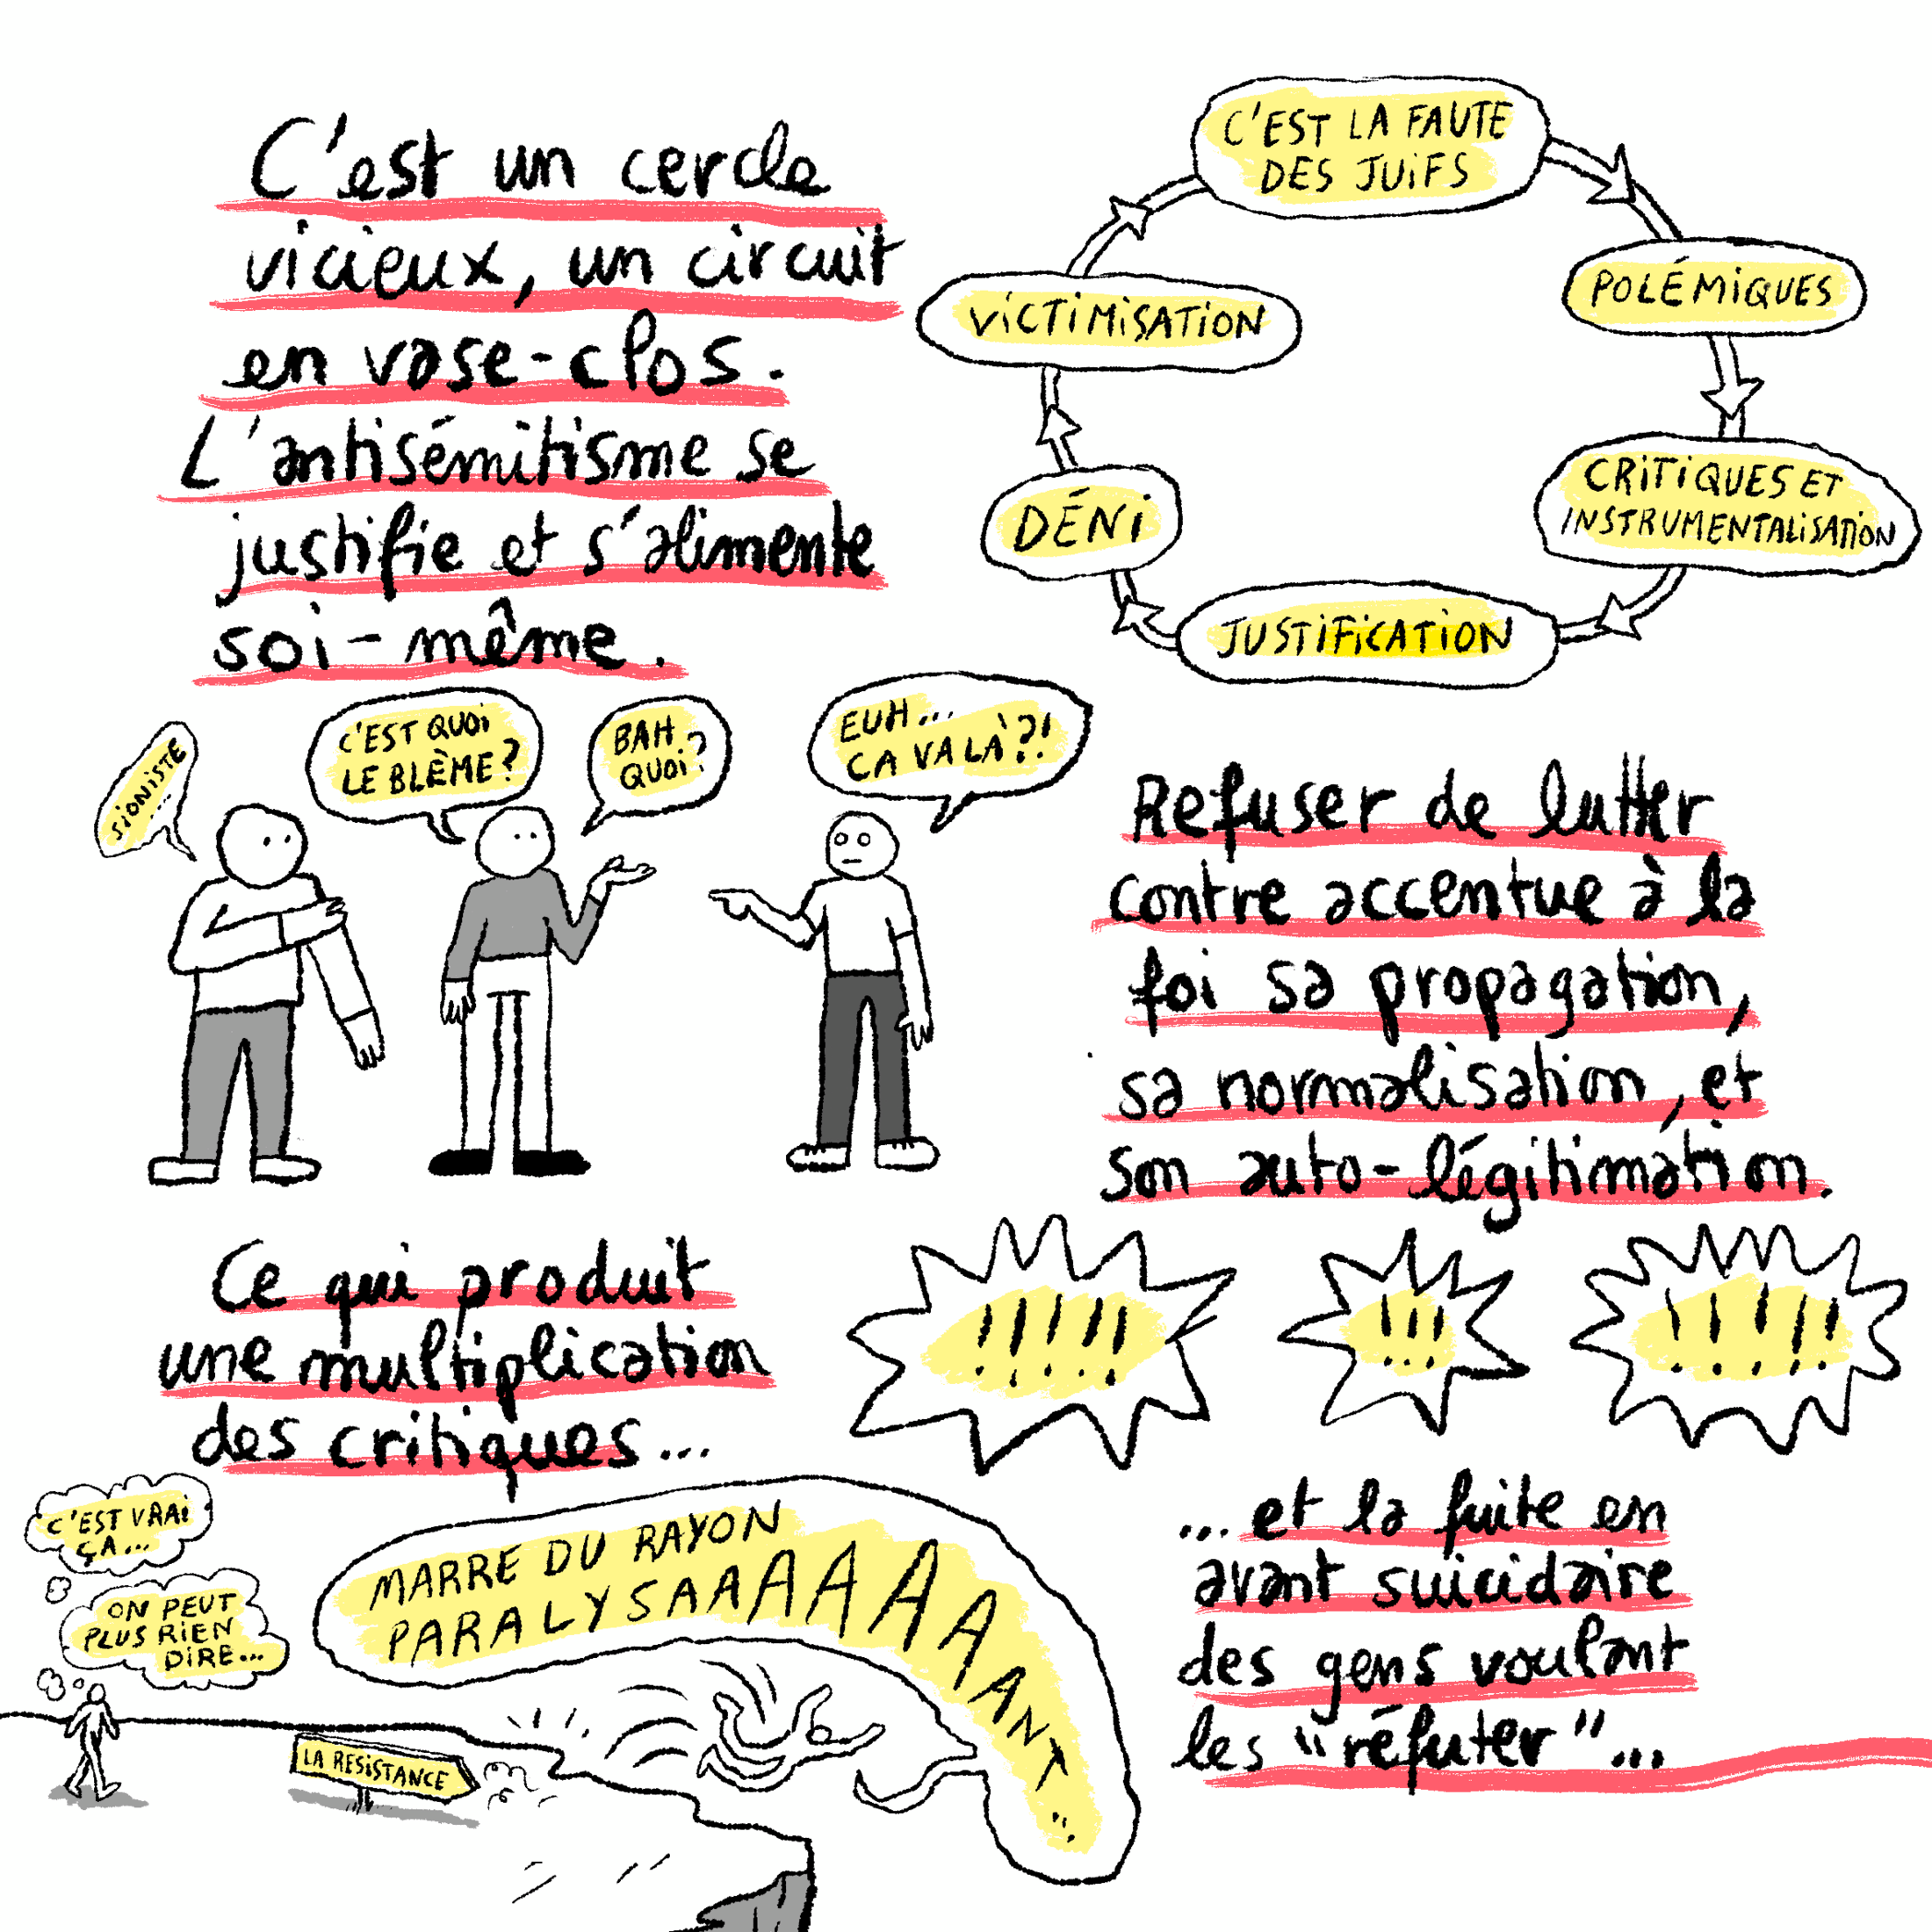 C'est un cercle
vicieux, un circuit
en vase-clos.
L'antisémitisme se
justifie et s'alimente
soi-même.
C'EST LA FAUTE
DES JUIFS
POLÉMIQUES
CRITIQUES ET
INSTRUMENTALISATION
JUSTIFICATION
DÉNI
VICTIMISATION
SIONISTE
...
C'EST QUOI
LE BLÈME?
BAH
QUOI?
EUH...
CA VA LÀ?!
Refuser de lutter
contre accentue à la
foi sa propagation,
sa normalisation, et
son auto-légitimation.
Ce qui produit
une multiplication
des critiques...
!!!!!
!!!
!!!!!
C'EST VRAI
ÇA...
ON PEUT
PLUS RIEN
DIRE...
LA RESISTANCE
MARRE DU RAYON
PARALYSAAAAAAANT...
... et la fuite en
avant suicidaire
des gens voulant
les "réfuter"...